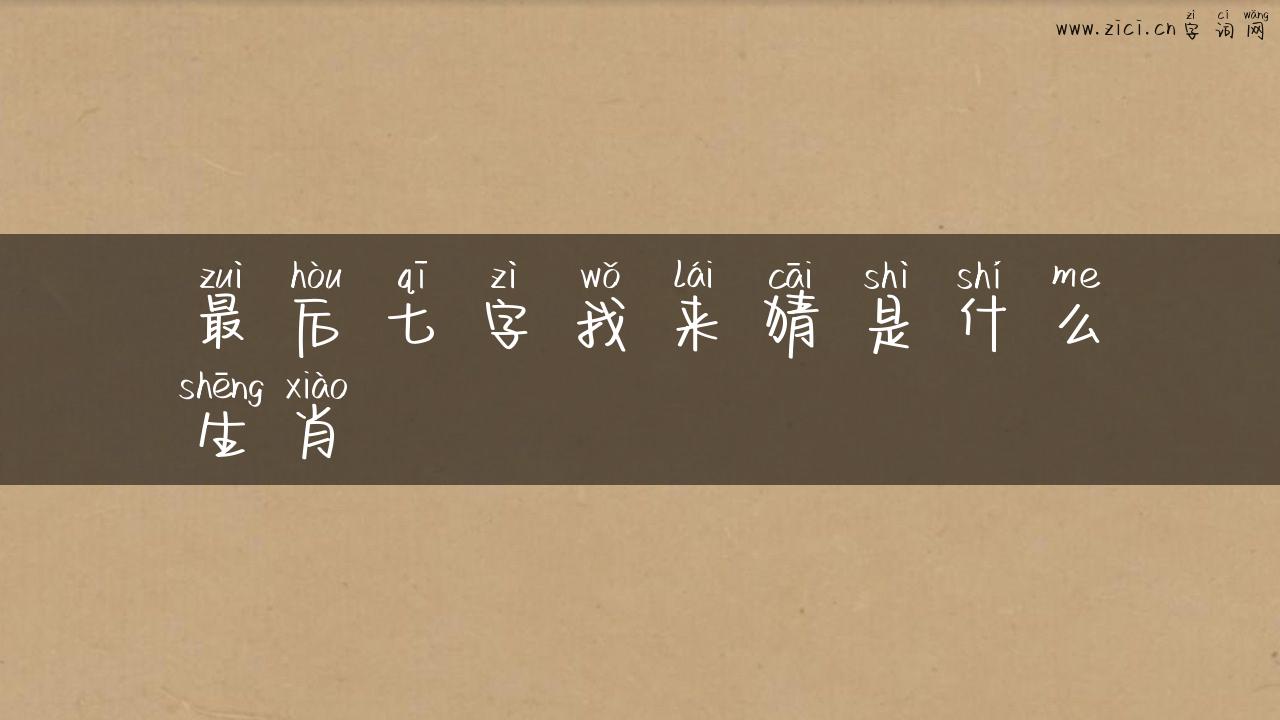 zì cí wǎng
www.zici.cn 字 词 网
zuì hòu qī zì wǒ lái cāi shì shí me
最 后 七 字 我 来 猜 是 什 么
shēng xiào
生 肖